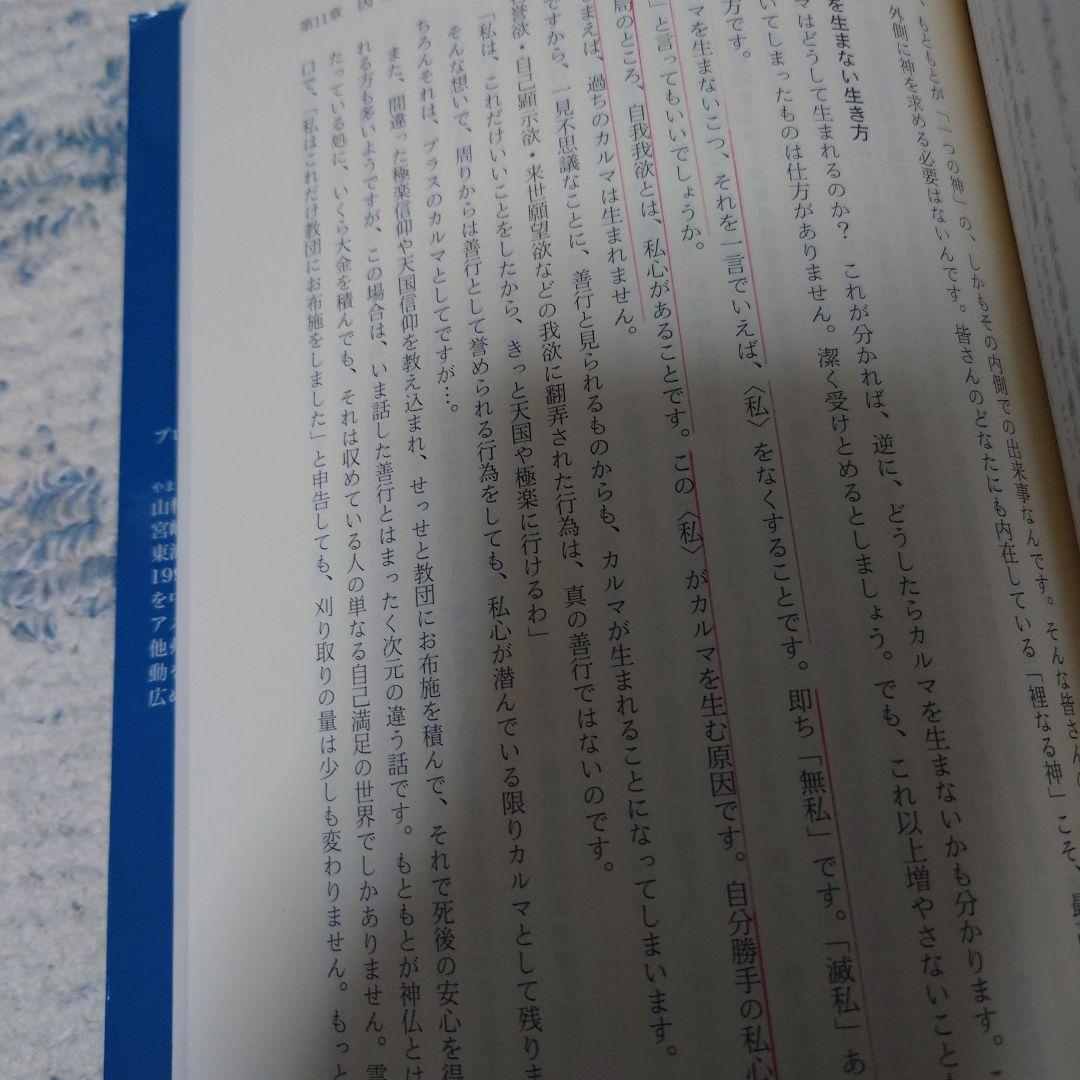 、もともとが「一つの神」の、しかもその内側での出来事なんです。そんな皆さんの
外側に神を求める必要はないんです。皆さんのどなたにも内在している「裡なる神」こそ、最
を生まない生き方
マはどうして生まれるのか？　これが分かれば、逆に、どうしたらカルマを生まないかも分かります。こ
いてしまったものは仕方がありません。潔く受けとめるとしましょう。でも、これ以上増やさないこと
方です。
マを生まないこつ、それを一言でいえば、〈私〉をなくすることです。即ち「無私」です。「滅私」あ
」と言ってもいいでしょうか。
局のところ、自我我欲とは、私心があることです。この〈私〉がカルマを生む原因です。自分勝手の私心
さまえば、過ちのカルマは生まれません。
ですから、一見不思議なことに、善行と見られるものからも、カルマが生まれることになってしまいます。
誉欲・自己顕示欲・来世願望欲などの我欲に翻弄された行為は、真の善行ではないのです。
「私は、これだけいいことをしたから、きっと天国や極楽に行けるわ」
そんな想いで、周りからは善行として誉められる行為をしても、私心が潜んでいる限りカルマとして残りま
ちろんそれは、プラスのカルマとしてですが…。
また、間違った極楽信仰や天国信仰を教え込まれ、せっせと教団にお布施を積んで、それで死後の安心を得
れる方も多いようですが、この場合は、いま話した善行とはまったく次元の違う話です。もともとが神仏とは
たっている処に、いくら大金を積んでも、それは収めている人の単なる自己満足の世界でしかありません。霊
口で、「私はこれだけ教団にお布施をしました」と申告しても、刈り取りの量は少しも変わりません。もっと
第11章　因
プロ
やま
山
宮
東
199
を
ア
他
動
広